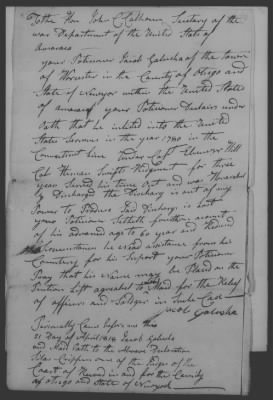 To the Hon John C Calhoun Secretary of the
war Department of the United States of
America
your Petitioner Jacob Galusha of the town
of Worster in the County of Otsego and
State of Newyork within the United States
of america your Petitioner Declairs under
Oath that he inlisted into the United
States Servis in the year 1780 in the
Conneticut line under Capt Ebenezer Hill
Col Heman Swifts Regiment for three
year Served his time out and was Honorabel
Discharged the Discharg is out of my
Power to Produce Said Discharge is Lost
your Petitioner Setteth forth on account
of his advanced age to 60 year and Reduced
Circumstances he need asistance from his
Country for his Support your Petitioner
Pray that his name may be Placed on the
Pention List agreeabel to Act for the Relief
of officers and Soldiers in Such Case
Jacob Galusha
Personally Came before me this
21 Day of April 1818 Jacob Galusha
and Made Oath to the Above Declaration
Silas Crippen one of the Judges of the
Court of Record in and for the County
of Otsego and State of Newyork